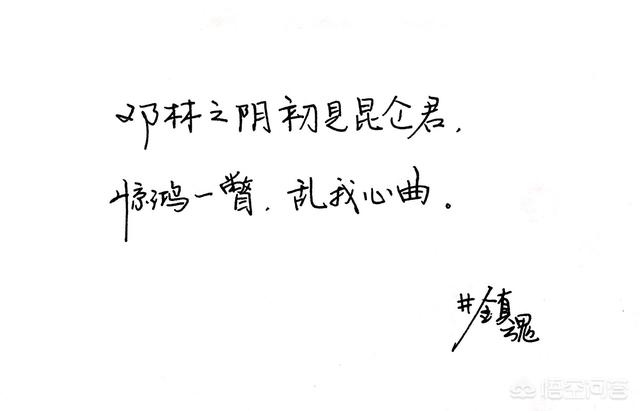 邓林之阴初见昆仑君，
惊鸿一瞥，乱我心曲。
#镇魂
悟空问答